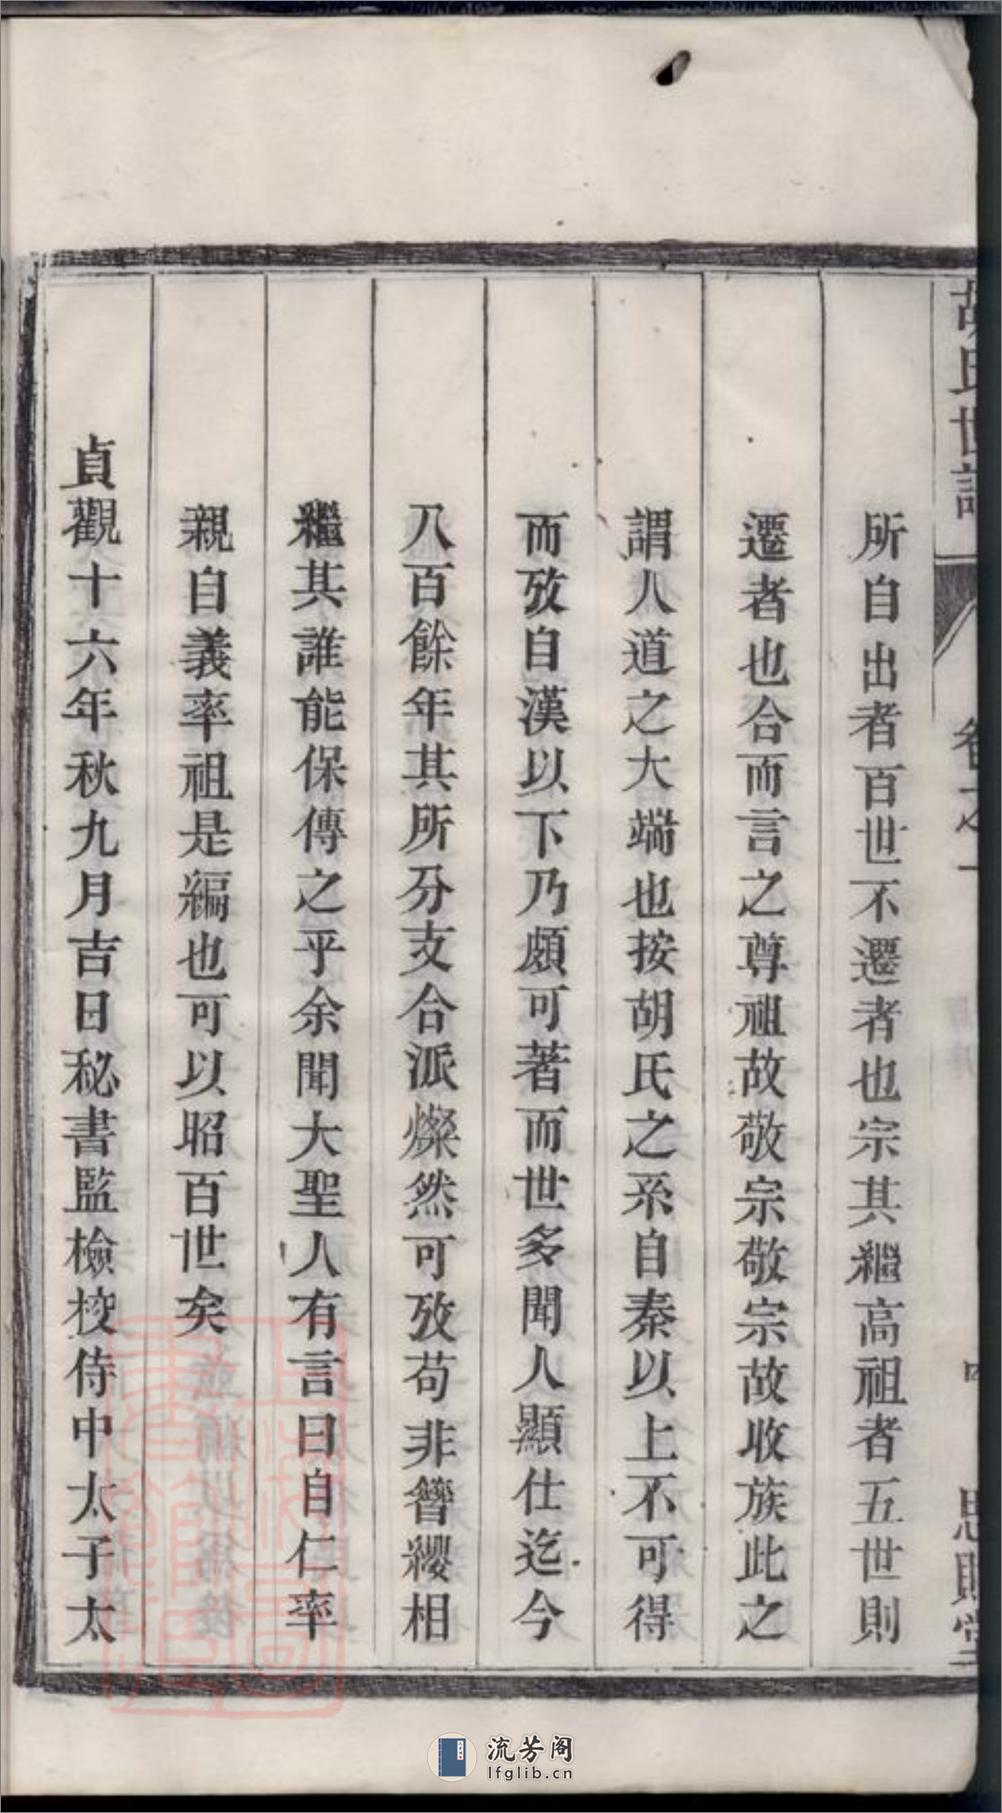 胡氏世譜
卷之一
思貽堂
所自出者百世不遷者也宗其繼高祖者五世則
遷者也合而言之尊祖故敬宗敬宗故收族此之
謂人道之大端也按胡氏之系自秦以上不可得
而攷自漢以下乃頗可著而世多聞人顯仕迄今
八百餘年其所分支合派燦然可攷苟非簪纓相
繼其誰能保傳之乎余聞大聖人有言曰自仁率
親自義率祖是編也可以昭百世矣
貞觀十六年秋九月吉日秘書監檢校侍中太子太
流芳阁
lfglib.cn